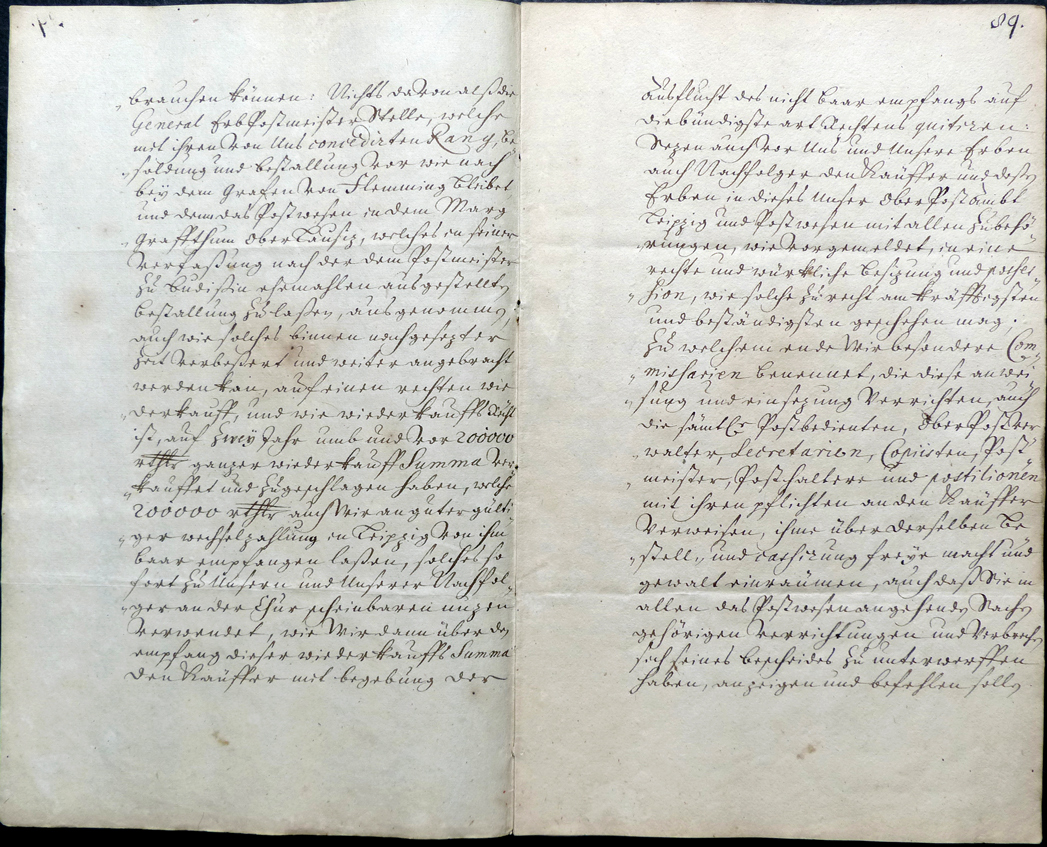 brauchen können: Nichts davon alß die
General ErbPostmeister Stelle, welche
mit ihren von Uns concedirten Rang, be-
soldung und bestallung vor wie nach
bey dem Grafen von Flemming bleibet
und denn das Postwesen in dem Marg
Graffthum OberLausiz, welches in seiner
Verfaßung nach der dem Postmeister
zu Budißin ehemahlen ausgestellten
bestallung zu laßen, ausgenommen,
auch wie solches binnen nachgesezter
Zeit verbeßert und weiter angebracht
werden kan, auf einen rechten wie
derkauff, und wie wiederkauffs Recht
ist, auf Zwey Jahr umb und vor 200000
rthlr ganzer wiederkauff Summa ver-
kauffet und zugeschlagen haben, welche
200000 rthlr auch Wir an guter gülti-
ger wechselzahlung in Leipzig von ihm
baar empfangen laßen, solches so
fort zu Unsern und Unserer Nachfol-
ger an der Chur scheinbaren nuzen
verwendet, wie Wir dann über den
empfang dieser wiederkauffs Summa
den Käuffer mit begebung der
89.
Ausflucht des nicht baar empfangs auf
die bündigste art Rechtens quitiren:
Sezen auch vor Uns und Unsere Erben
auch Nachfolger den Käuffer und deßen
Erben in dieses Unser OberPostambt
Leipzig und Postwesen mit allen Zubehö-
rungen, wie vorgemeldet, in eine
rechte und würckliche besizung und posses-
sion, wie solche zu recht am kräfftigsten
und beständigsten geschehen mag;
Zu welchem ende Wir besondere Com-
missarien benennet, die diese anwei-
sung und einsezung verrichten, auch
die sämtl. Postbedienten, OberPostver
walter, Secretarien, Copiisten, Post-
meister, Posthaltere und postilionen
mit ihren pflichten an den Käuffer
verweisen, ihme über derselben Be-
stell- und cassirung freye macht und
gewalt einräumen, auch daß Sie in
allen das Postwesen angehenden Sachen
gehörigen verrichtungen und Verbrechen
sich seines bescheides zu unterwerffen
haben, anzeigen und befehlen sollen